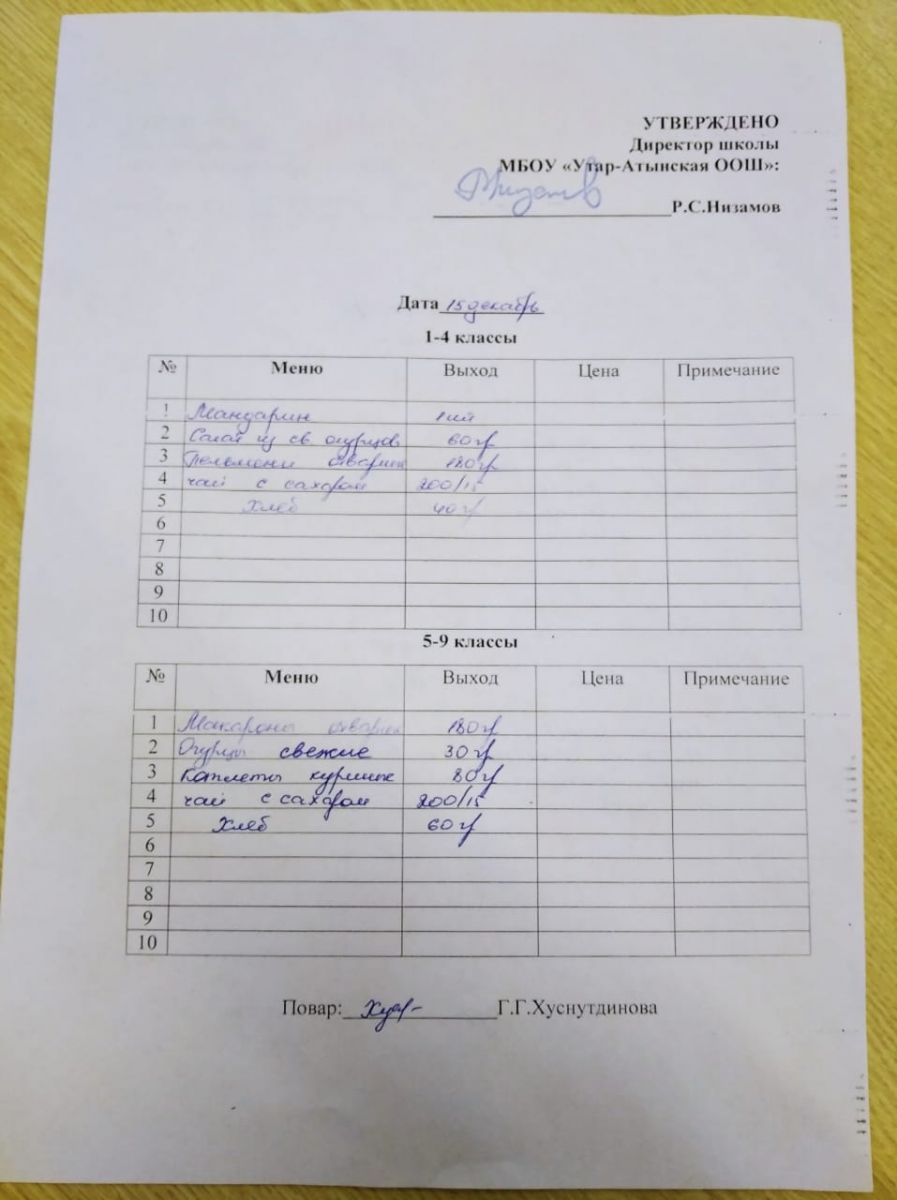 УТВЕРЖДЕНО
Директор школы
МБОУ «Утар-Атынская ООШ»:
Р.С.Низамов
Дата 15 декабрь
1-4 классы
№ Меню Выход Цена Примечание
1 Мандарин 1 шт
2 Салат из св. огурцов 60 гр
3 Пельмени отварные 180 гр
4 чай с сахаром 200/15
5 Хлеб 40 гр
6
7
8
9
10
5-9 классы
№ Меню Выход Цена Примечание
1 Макароны отварные 180 гр
2 Огурцы свежие 30 гр
3 Котлеты куриные 80 гр
4 чай с сахаром 200/15
5 Хлеб 60 гр
6
7
8
9
10
Повар: Г.Г.Хуснутдинова